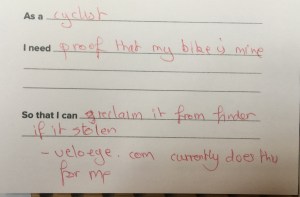 As a cyclist
I need proof that my bike is mine
So that I can reclaim it from finder
if it stolen
- veloeye.com currently does this
for me